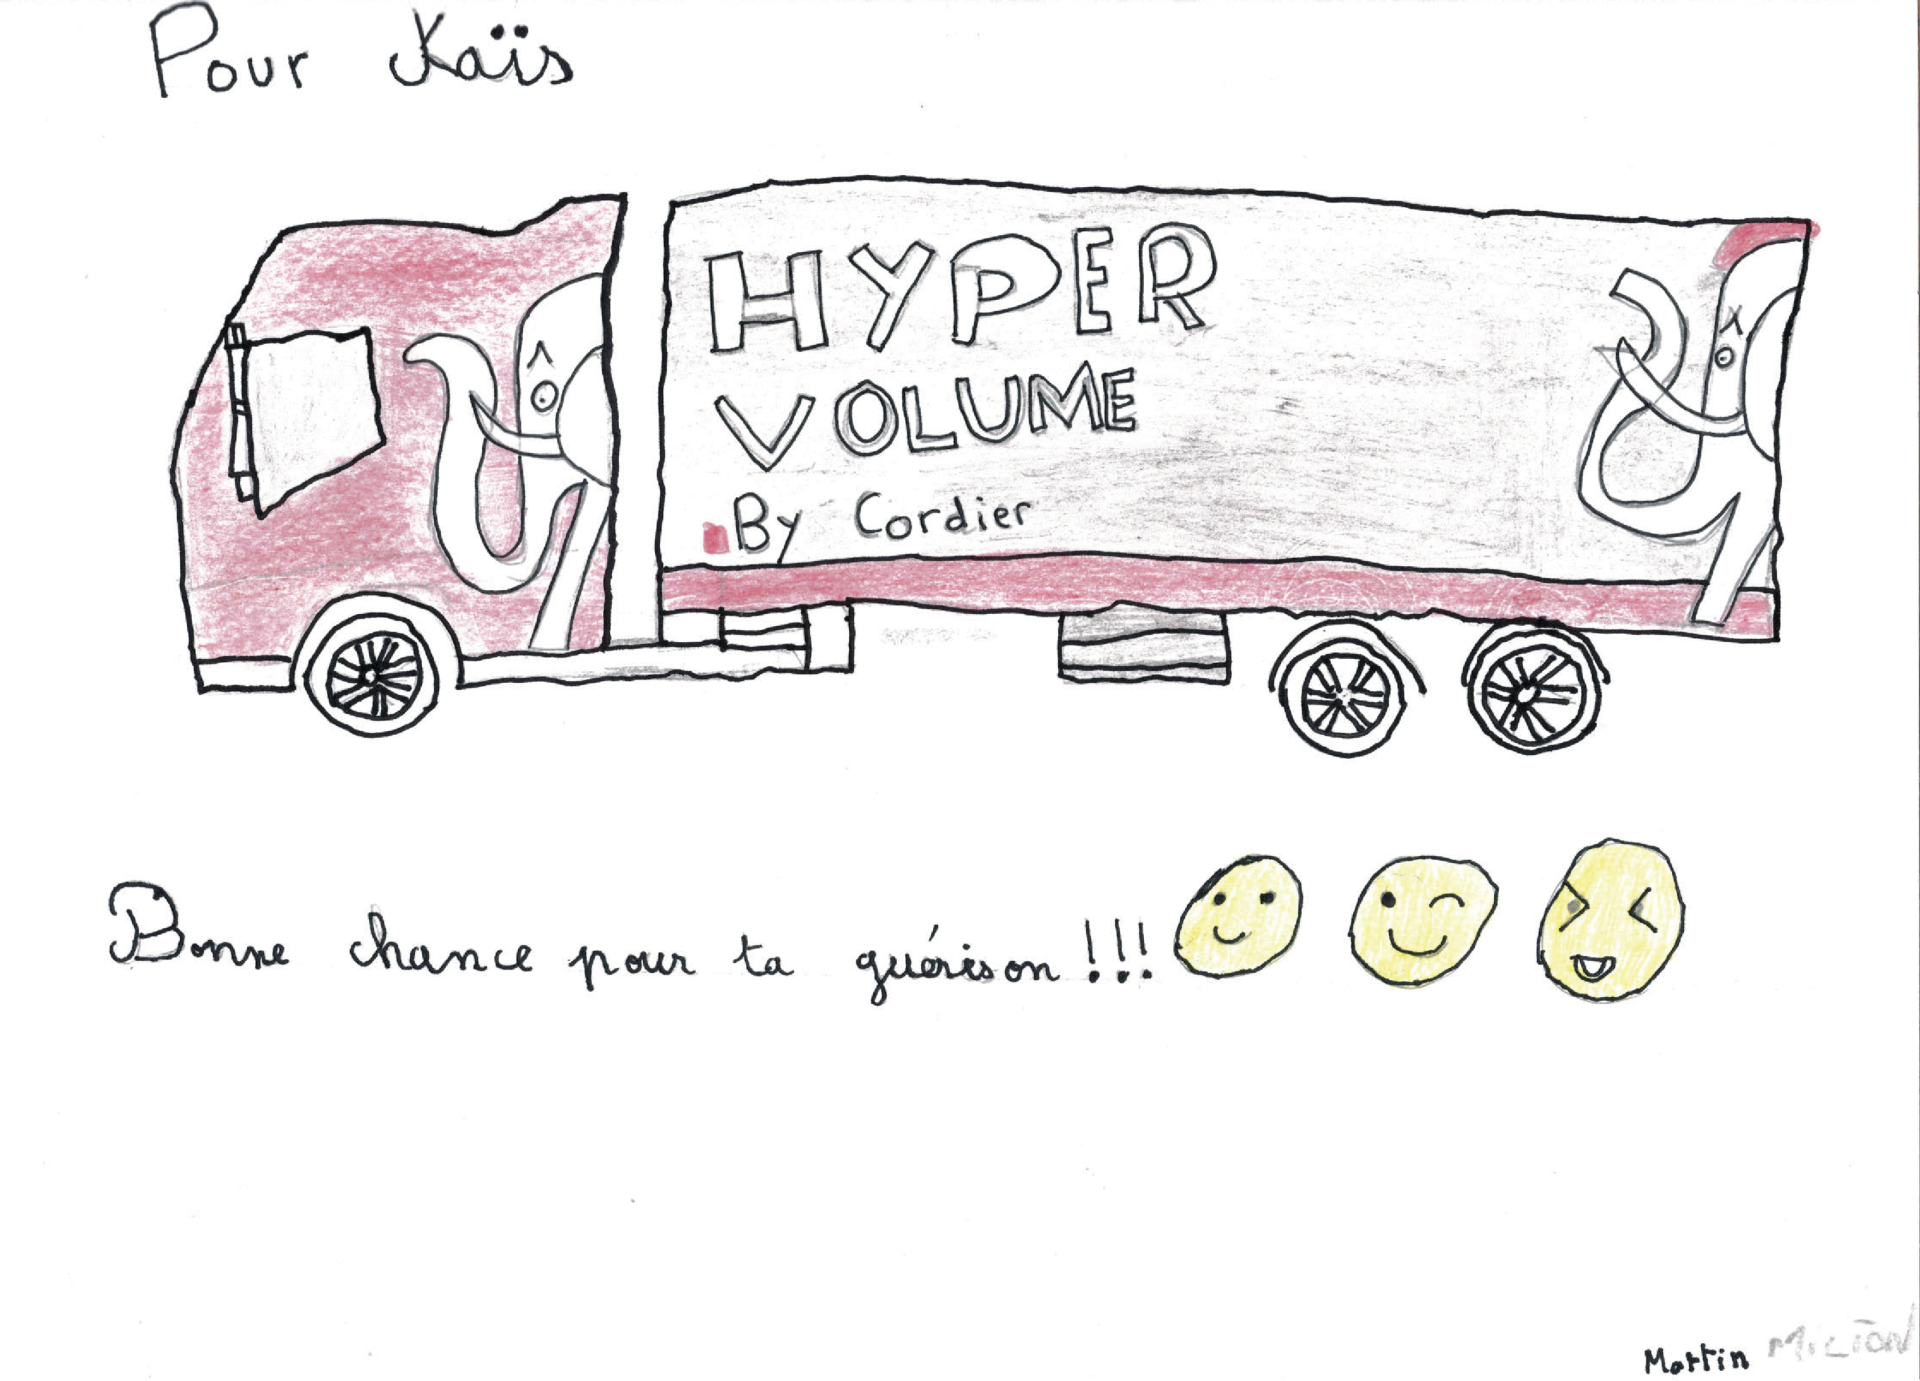 Pour Kaïs
HYPER
VOLUME
By Cordier
Bonne chance pour ta guérison !!!
Martin